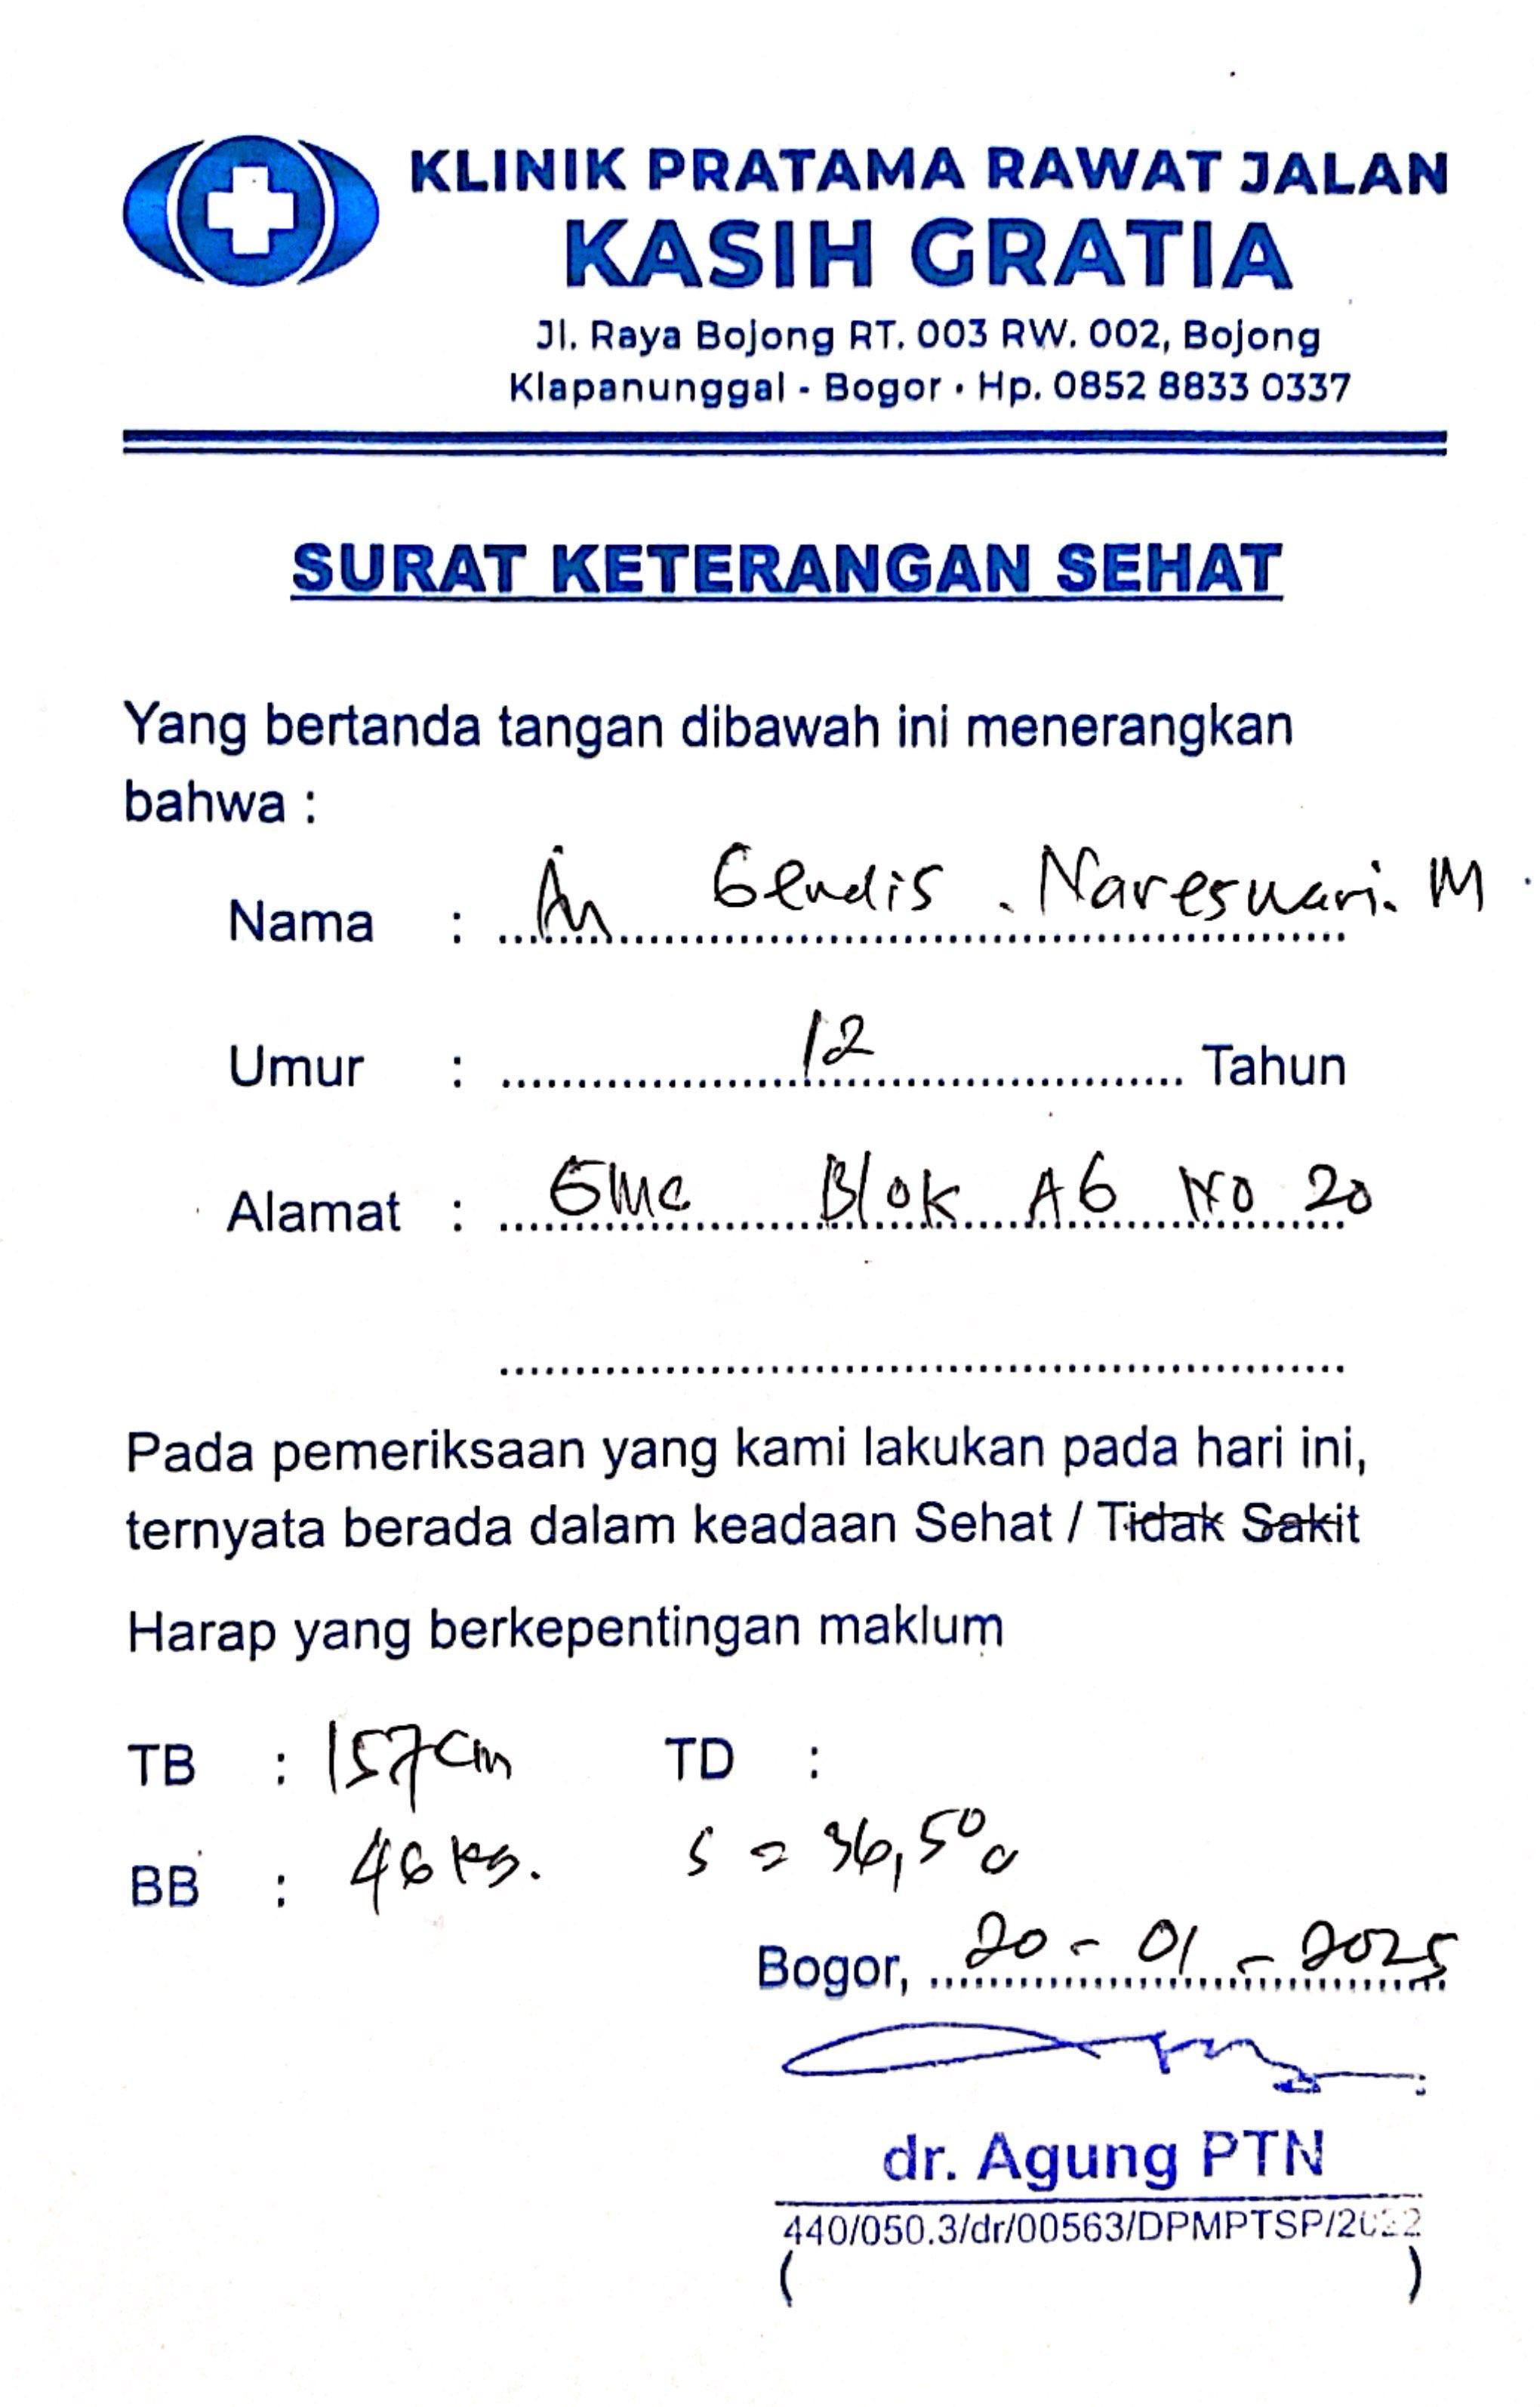 KLINIK PRATAMA RAWAT JALAN
KASIH GRATIA
Jl. Raya Bojong RT. 003 RW. 002, Bojong
Klapanunggal - Bogor • Hp. 0852 8833 0337
SURAT KETERANGAN SEHAT
Yang bertanda tangan dibawah ini menerangkan
bahwa :
Nama : An Gendis . Nareswari. M
Umur : 12 Tahun
Alamat : GMC Blok A6 No 20
Pada pemeriksaan yang kami lakukan pada hari ini,
ternyata berada dalam keadaan Sehat / Tidak Sakit
Harap yang berkepentingan maklum
TB : 157 cm TD :
BB : 46 kg. S = 36,5°c
Bogor, 20 - 01 - 2025
dr. Agung PTN
440/050.3/dr/00563/DPMPTSP/2022
( )